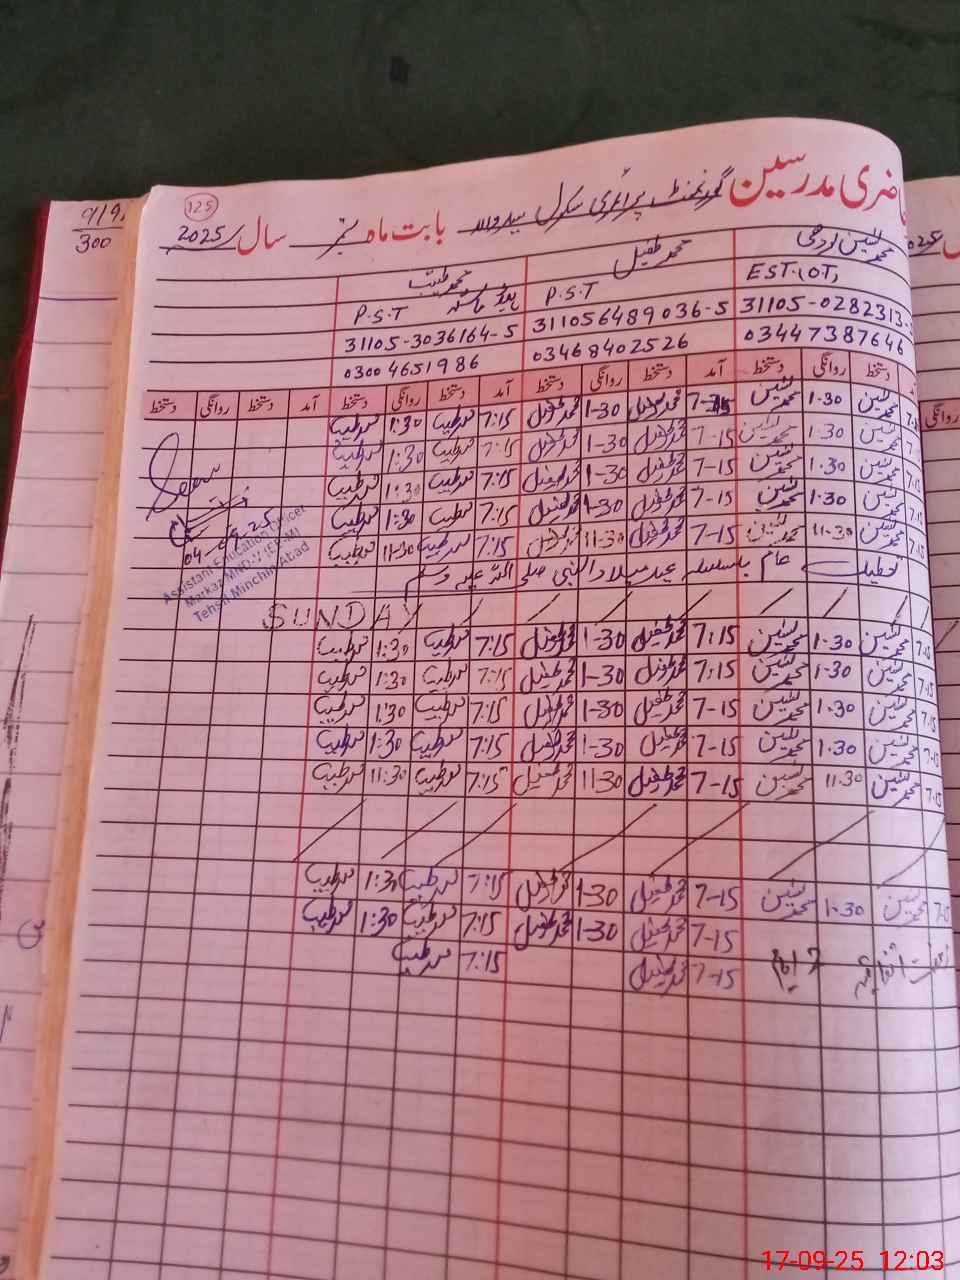 919
300
125
حاضری مدرسین گورنمنٹ پرائمری سکول بابت ماہ ستمبر سال 2025
2025
محمد یٰسین لودھی محمد طفیل محمد طیب
EST.(OT) P.S.T P.S.T ہیڈ ماسٹر
31105-0282313- 311056489036-5 31105-3036164-5
03447387646 03468402526 03004651986
دستخط روانگی دستخط آمد دستخط روانگی دستخط آمد دستخط روانگی دستخط آمد دستخط روانگی
محمد یٰسین 1.30 محمد یٰسین 7-15 محمد طفیل 1-30 محمد طفیل 7:15 محمد طیب 1:30 محمد طیب
7.15 محمد یٰسین 1.30 محمد یٰسین 7-15 محمد طفیل 1-30 محمد طفیل 7:15 محمد طیب 1:30 محمد طیب
7.15 محمد یٰسین 1.30 محمد یٰسین 7-15 محمد طفیل 1-30 محمد طفیل 7:15 محمد طیب 1:30 محمد طیب
7.15 محمد یٰسین 1.30 محمد یٰسین 7-15 محمد طفیل 1-30 محمد طفیل 7:15 محمد طیب 1:30 محمد طیب
7.15 محمد یٰسین 11.30 محمد یٰسین 7-15 محمد طفیل 11-30 محمد طفیل 7:15 محمد طیب 11:30 محمد طیب
04-09-25
Assistant Education Officer
Markaz MND-V (EE-M)
Tehsil Minchin Abad
تعطیل عام بسلسلہ عید میلاد النبی صلی اللہ علیہ وسلم
SUNDAY
7.15 محمد یٰسین 1.30 محمد یٰسین 7:15 محمد طفیل 1-30 محمد طفیل 7:15 محمد طیب 1:30 محمد طیب
7.15 محمد یٰسین 1.30 محمد یٰسین 7:15 محمد طفیل 1-30 محمد طفیل 7:15 محمد طیب 1:30 محمد طیب
7.15 محمد یٰسین 1.30 محمد یٰسین 7-15 محمد طفیل 1-30 محمد طفیل 7:15 محمد طیب 1:30 محمد طیب
7.15 محمد یٰسین 1.30 محمد یٰسین 7-15 محمد طفیل 1-30 محمد طفیل 7:15 محمد طیب 1:30 محمد طیب
7.15 محمد یٰسین 11.30 محمد یٰسین 7-15 محمد طفیل 11-30 محمد طفیل 7:15 محمد طیب 11:30 محمد طیب
7-15 محمد یٰسین 1.30 محمد یٰسین 7-15 محمد طفیل 1-30 محمد طفیل 7:15 محمد طیب 1:30 محمد طیب
رخصت اتفاقیہ 2 ایام 7-15 محمد طفیل 1-30 محمد طفیل 7:15 محمد طیب 1:30 محمد طیب
7-15 محمد طفیل 7:15 محمد طیب
17-09-25 12:03